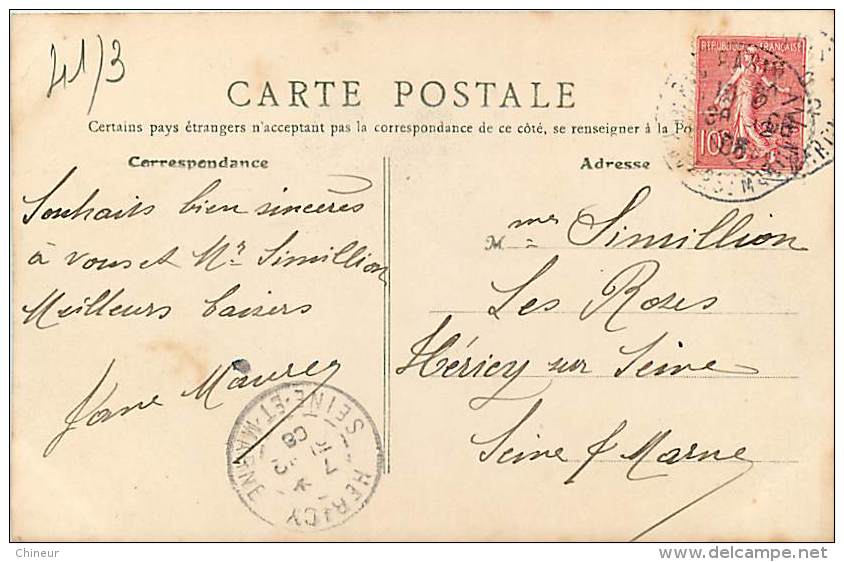 41/3
CARTE POSTALE
Certains pays étrangers n'acceptant pas la correspondance de ce côté, se renseigner à la
Correspondance
Souhaits bien sincères
à vous et Mr Simillion
Meilleurs baisers
Jane
Adresse
Mme Simillion
Les Roses
Héricy sur Seine
Seine & Marne
REPUBLIQUE FRANÇAISE
10
PARIS
HERICY
SEINE-ET-MARNE
Chineur
delcampe.net